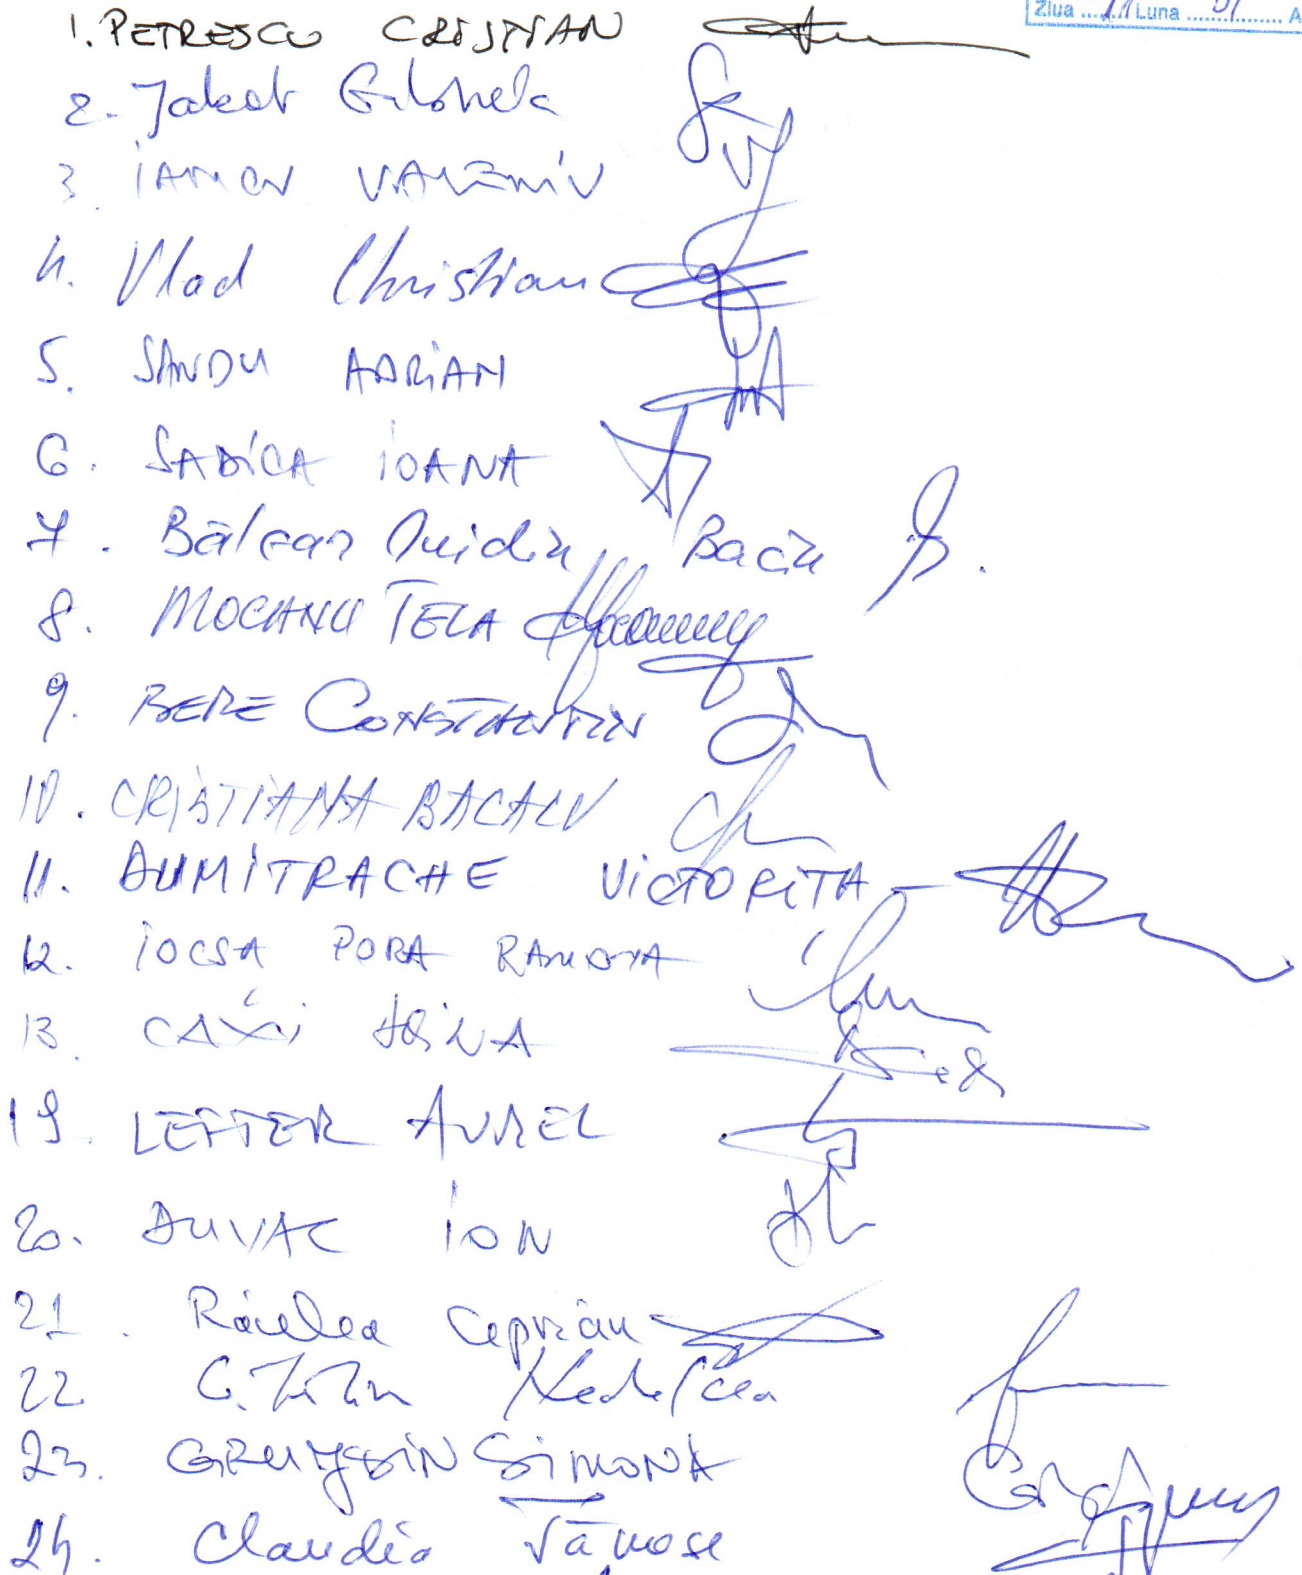 Ziua ..11.. Luna ..01.. A
1. PETRESCU CRISTIAN
2. Jakab Gabriela
3. IAMCU VALENTIN
4. Vlad Christian
5. SANDU ADRIAN
6. SADICA IOANA
7. Bâlcan Ovidiu Baciu
8. MOCANU TELA
9. BERE CONSTANTIN
10. CRISTIANA BACALU
11. DUMITRACHE VICTORITA
12. IOCSA PORA RAMONA
13. IRINA
19. LEFTER AUREL
20. DUVAC ION
21. Ciprian
22
23. SIMONA
24. Claudia Tănase